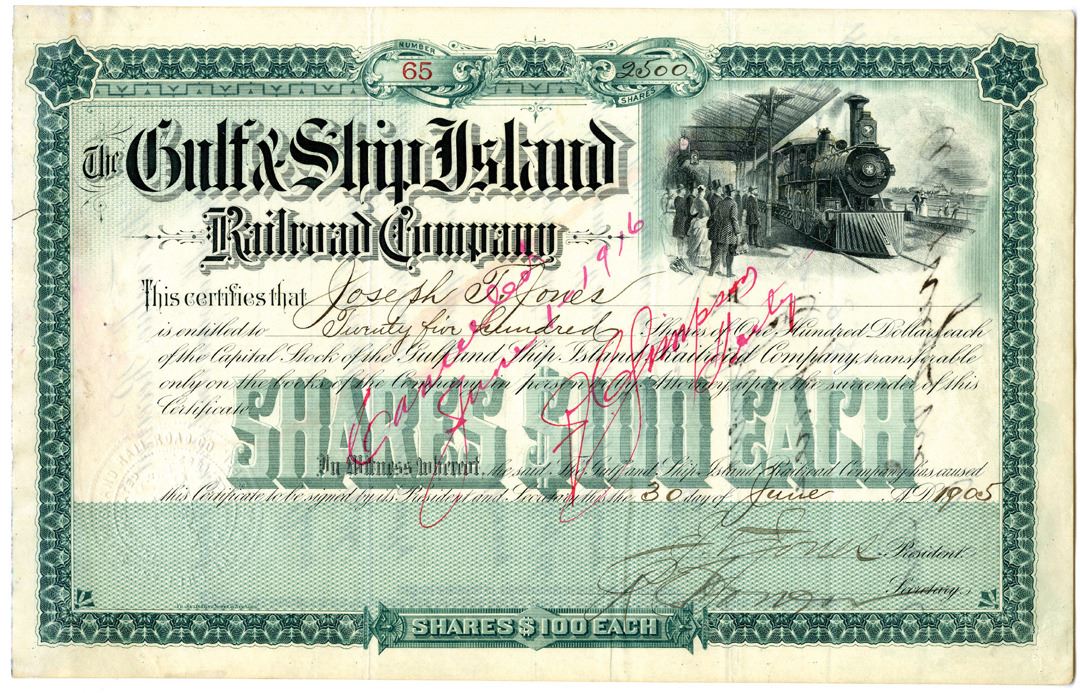 NUMBER
65
2500
SHARES
The Gulf & Ship Island
Railroad Company
This certifies that Joseph T. Jones
is entitled to Twenty five Hundred Shares of One Hundred Dollars each
of the Capital Stock of the Gulf and Ship Island Railroad Company, transferable
only on the books of the Company in person or by Attorney upon the surrender of this
Certificate.
SHARES $100 EACH
In Witness Whereof, the said, The Gulf and Ship Island Railroad Company has caused
this Certificate to be signed by its President and Secretary this the 30 day of June A.D. 1905
J T Jones President.
Secretary.
SHARES $100 EACH
Cancelled
June 1 - 1916
Simpson
Secty